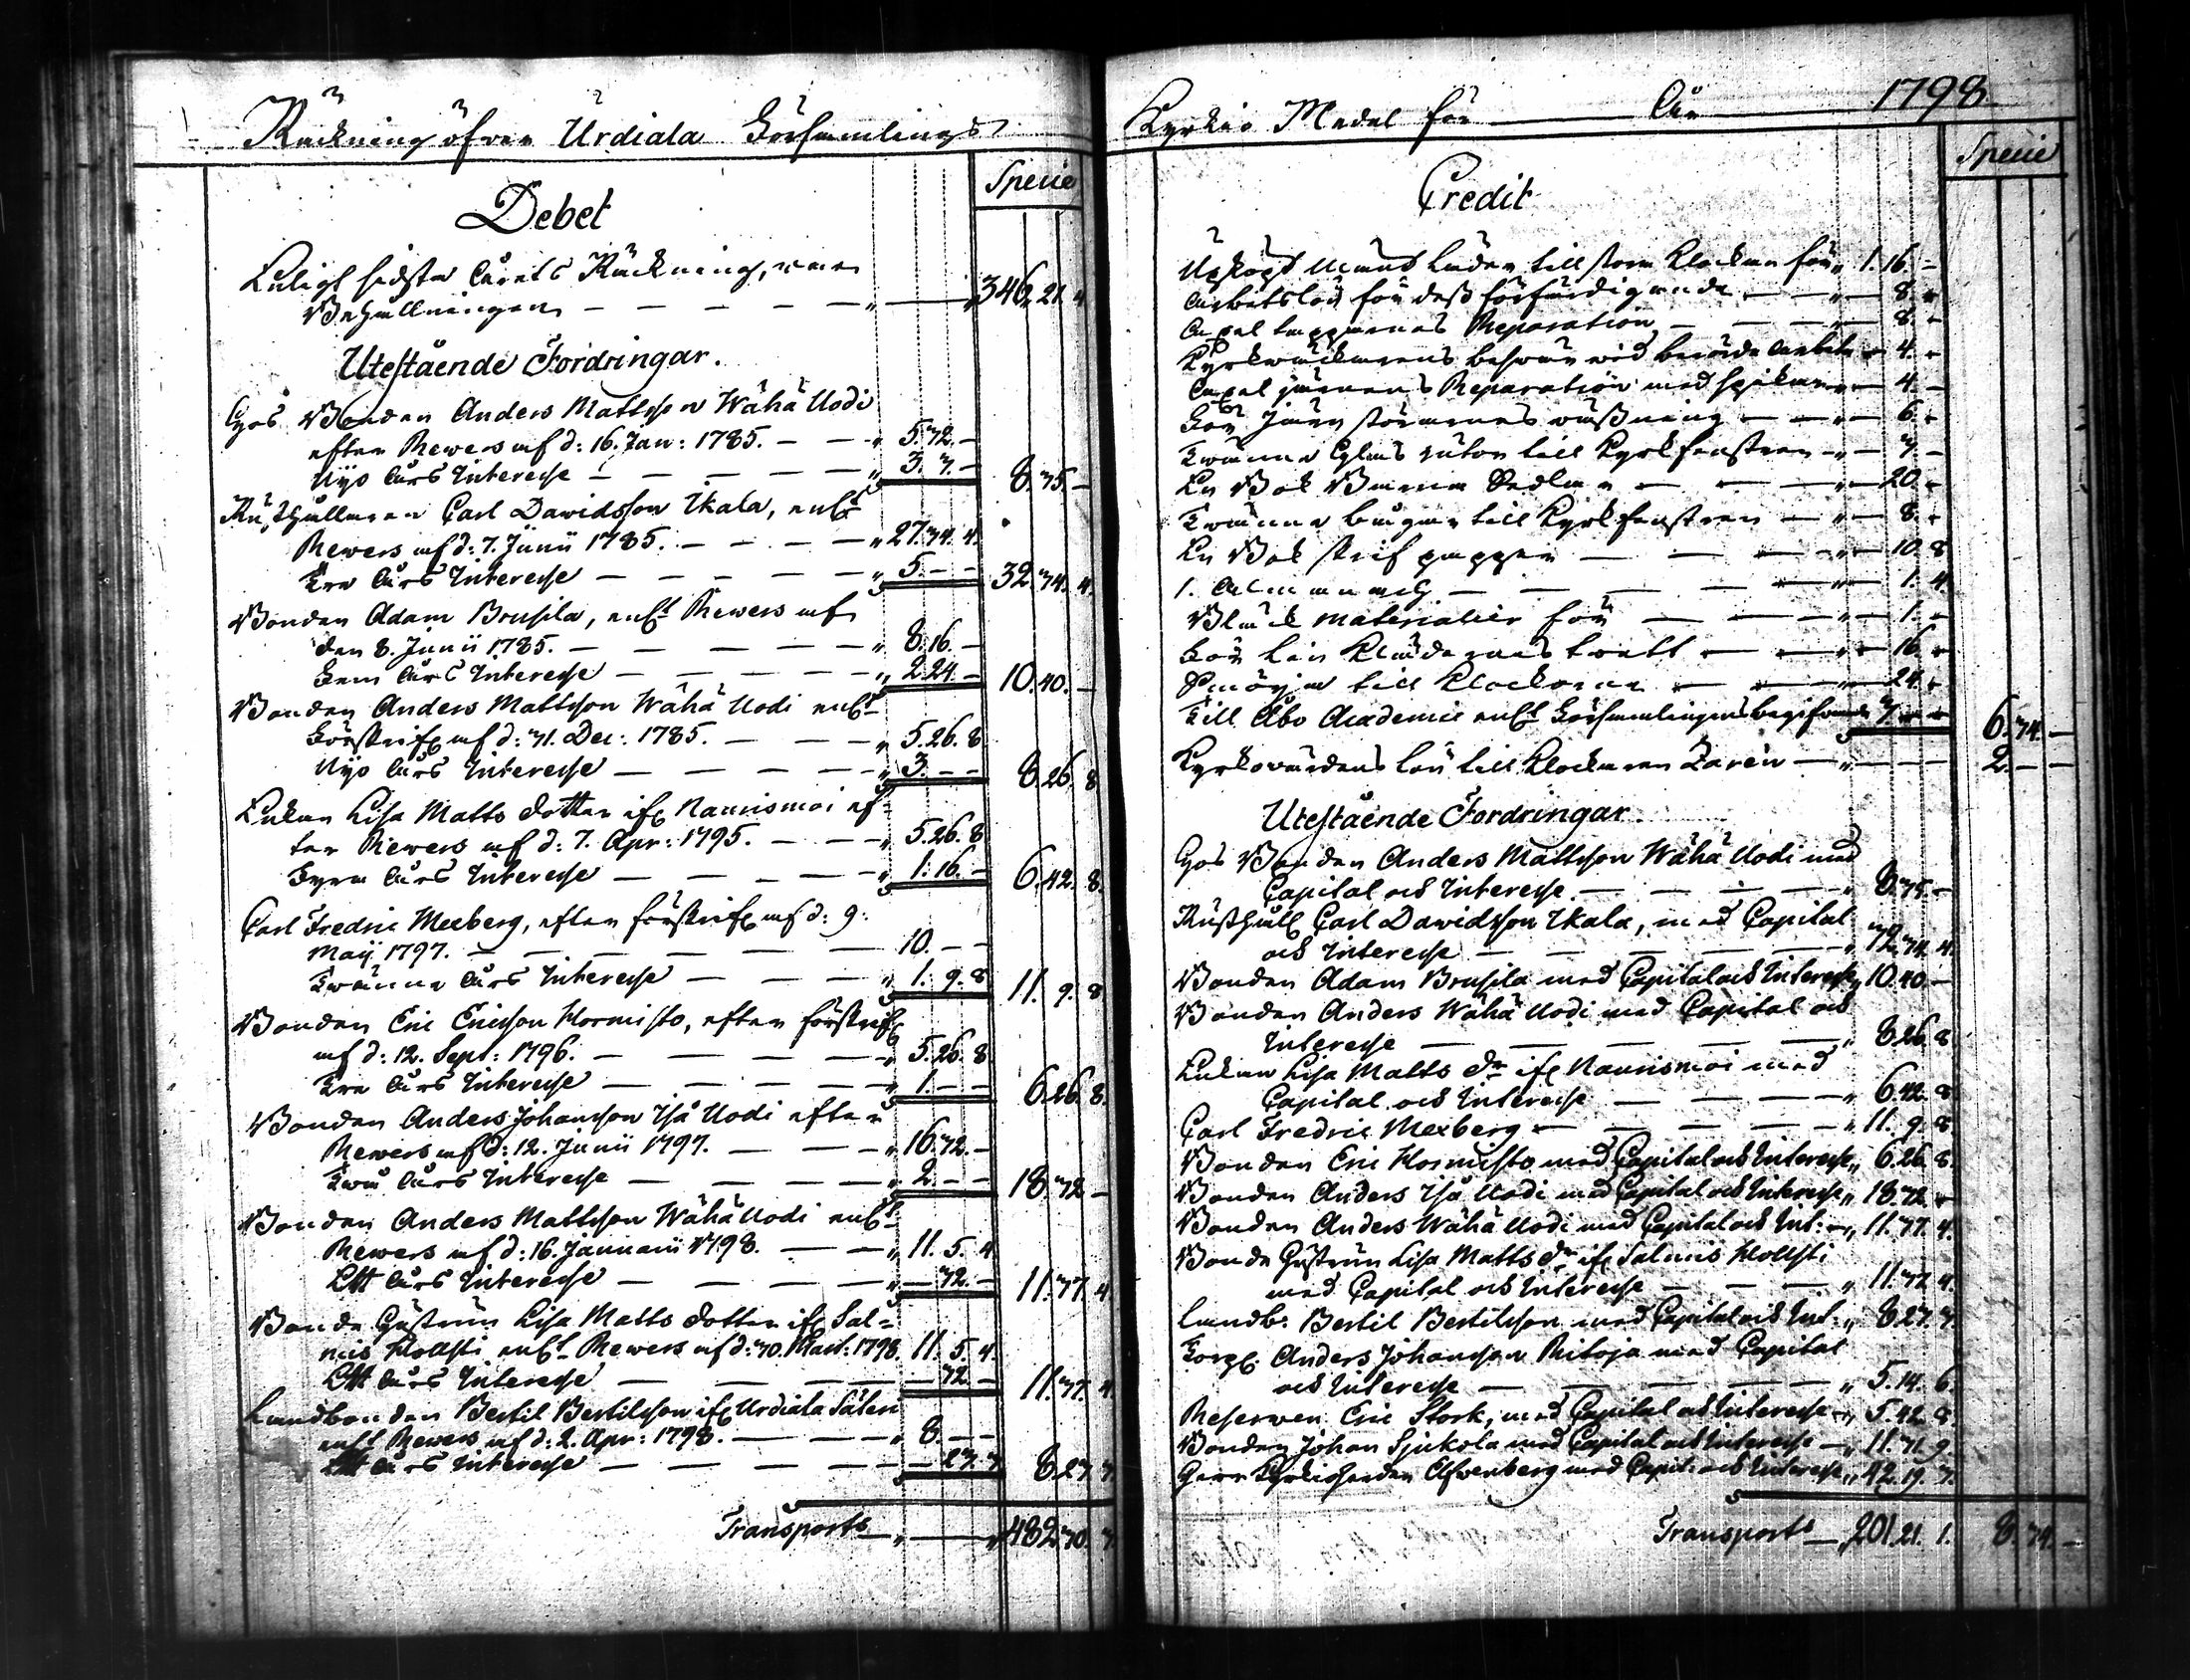 Räckning öfver Urdiala Församlings
Debet
Specie
Enligt sidsta årets Räckning, var
Behållningen — — — — „ — 346. 21. „
Utestående Fordringar.
Hos Bonden Anders Mattsson Wähä Uodi
efter Revers af d: 16. Jan: 1785. — — „ 5. 32. –
Nijo års Interesse — — — — „ 3. 3. – 8. 35. –
Rusthållaren Carl Davidsson Ikala, enl:t
Revers af d: 7. Junii 1785. — — — „ 27. 34. 4.
Tre års Interesse — — — — „ 5. – – 32. 34. 4.
Bonden Adam Brusila, enl:t Revers af
den 8. Junii 1785. — — — — „ 8. 16. –
Fem års Interesse — — — — „ 2. 24. – 10. 40. –
Bonden Anders Mattsson Wähä Uodi enl:t
Förskrifn: af d: 31. Dec: 1785. — — — „ 5. 26. 8
Nijo års Interesse — — — — „ 3. – – 8. 26. 8
Enkan Lisa Matts dotter ifr: Naurismoi ef-
ter Revers af d: 7. Apr: 1795. — — „ 5. 26. 8
Fyra års Interesse — — — — „ 1. 16. – 6. 42. 8.
Carl Fredric Mexberg, efter förskrifn: af d: 9.
Maij 1797. — — — — — 10. – –
Tvänne års Interesse — — — „ 1. 9. 8 11. 9. 8
Bonden Eric Ericsson Hormisto, efter förskrifn:
af d: 12. Sept: 1796. — — — — „ 5. 26. 8
Tre års Interesse — — — — „ 1. – – 6. 26. 8.
Bonden Anders Johansson Iså Uodi efter
Revers af d: 12. Junii 1797. — — „ 16. 32. –
Två års Interesse — — — „ 2. – – 18. 32 –
Bonden Anders Mattsson Wähä Uodi enl:t
Revers af d: 16. Januarii 1798. — — „ 11. 5. 4
Ett års Interesse — — — — „ – 32. – 11. 37. 4
Bonde Hustrun Lisa Matts dotter ifr: Sal-
mis Hollsti enl:t Revers af d: 30. Mart: 1798. 11. 5. 4.
Ett års Interesse — — — — – 32. – 11. 37. 4
Landbonden Bertil Bertilsson ifr: Urdiala Säteri
enl:t Revers af d: 2. Apr: 1798. — — — „ 8. – –
Ett års Interesse — — — — – 27. 3 8. 27. 3
Transport „ — „ 482. 30. 3
Kyrkio Medel för — År — 1798
Credit
Specie
Upköpt läder till stora Klockan för „ 1. 16. –
Arbetslön för dess förfärdigande — — „ — 8. „
Reparation — — „ — 8. –
Kyrkwäcktarens besvär vid berörde arbete „ 4. „
Reparation med spikar „ — 4. –
— „ — 6. „
Tvänne Glas rutor till Kyrkfenstren „ — 3 –
En Bok — — „ — 20. „
Tvänne bugar till Kyrkfenstren — „ — 8. „
En Bok skrif papper — — — „ — 10. 8
1. Almanach — — — — „ — 1. 4.
Bläck materialier för — — — „ — 1. „
För Lin Klädernas tvätt — — „ — 16. „
Smörja till Klockorna — — — „ — 24. „
Till Åbo Academie enl:t Församlingens begifvande 3 „ „ 6. 34. –
Kyrkovärdens lön till Klockaren Zarén — „ — — 2. – –
Utestående Fordringar.
Hos Bonden Anders Mattsson Wähä Uodi med
Capital och Interesse. — — — „ 8. 35. –
Rusthåll: Carl Davidsson Ikala, med Capital
och Interesse — — — — „ 32. 34. 4.
Bonden Adam Brusila med Capital och Interesse „ 10. 40. –
Bonden Anders Wähä Uodi med Capital och
Interesse — — — — „ 8. 26. 8
Enkan Lisa Matts d:r ifr: Naurismoi med
Capital och Interesse — — — „ 6. 42. 8
Carl Fredric Mexberg — — — — „ 11. 9. 8.
Bonden Eric Hormisto med Capital och Interesse „ 6. 26. 8.
Bonden Anders Iså Uodi med Capital och Interesse „ 18. 32. „
Bonden Anders Wähä Uodi med Capital och Int: „ 11. 37. 4.
Bonde Hustrun Lisa Matts d:r ifr: Salmis Hollsti
med Capital och Interesse — — — „ 11. 37. 4.
Landb: Bertil Bertilsson med Capital och Int: „ 8. 27. 3.
Torp: Anders Johansson Ritoja med Capital
och Interesse — — — — „ 5. 14. 6.
Reserven Eric Stork, med Capital och Interesse „ 5. 42. 8.
Bonden Johan Sjukola med Capital och Interesse — „ 11. 31. 9.
Herr Kyrkioherden Alfvenberg med Capit: och Interesse „ 42. 19. 7.
Transport — 201. 21. 1. 8. 34. –